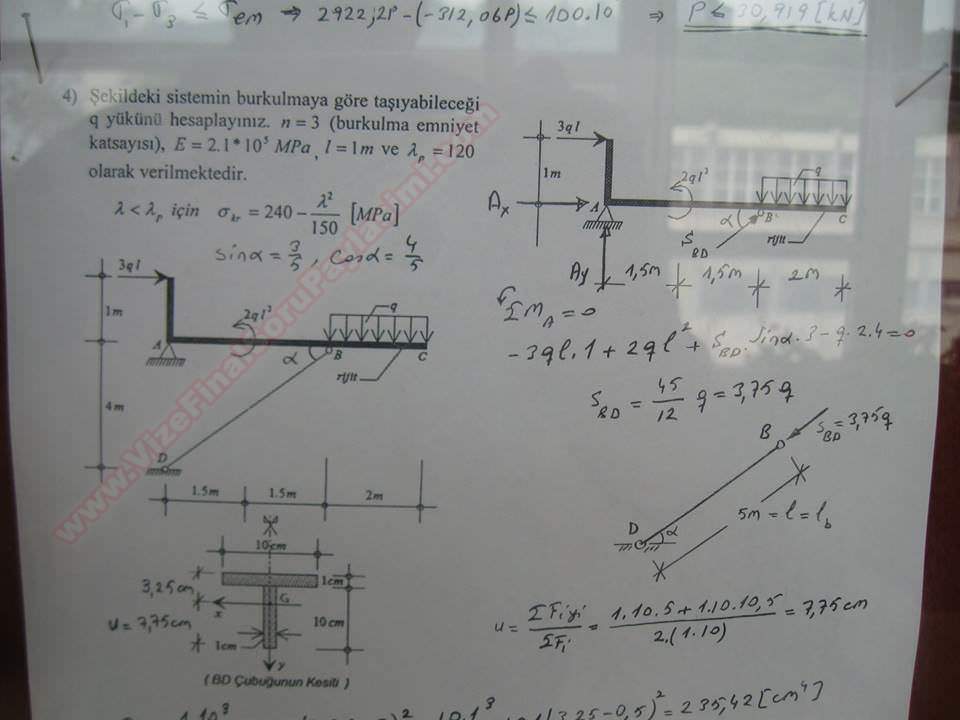 σ₁ - σ₃ ≤ σem ⇒ 2922,2P-(-312,06P) ≤ 100.10 ⇒ P ≤ 30,919 [kN]
4) Şekildeki sistemin burkulmaya göre taşıyabileceği
q yükünü hesaplayınız. n = 3 (burkulma emniyet
katsayısı), E = 2.1*10⁵ MPa, l = 1m ve λp = 120
olarak verilmektedir.
λ < λp için σkr = 240 - λ²/150 [MPa]
sinα = 3/5 , cosα = 4/5
3ql
1m
2ql²
q
A
α
B
C
rijit
4m
D
1.5m 1.5m 2m
10cm
1cm
3,25cm
G
x
u = 7,75cm
10cm
1cm
y
(BD Çubuğunun Kesiti)
3ql
1m
2ql²
q
Ax
A
α
B
C
SBD
rijit
Ay
1,5m 1,5m 2m
ΣMA = 0
-3ql.1 + 2ql² + SBD.sinα.3 - q.2.4 = 0
SBD = 45/12 q = 3,75q
B
SBD = 3,75q
D
α
5m = l = lb
u = ΣFiyi/ΣFi = 1.10.5 + 1.10.10,5/2.(1.10) = 7,75cm
(3,25-0,5)² = 235,42 [cm⁴]
www.VizeFinalSoruPaylasimi.com